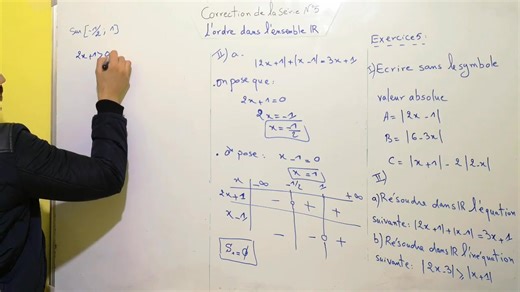 Correction de la série N°5
L'ordre dans l'ensemble IR
Sur [-1/2 ; 1]
2x+1>0
II) a.
|2x+1|+|x-1|=3x+1
. On pose que:
2x+1=0
2x=-1
x=-1/2
. On pose : x-1=0
x=1
x -∞ -1/2 1 +∞
2x+1 - 0 + +
x-1 - - 0 +
S₁=∅
Exercice 5:
I) Ecrire sans le symbole
valeur absolue
A=|2x-1|
B=|6-3x|
C=|x+1|-2|2-x|
II)
a) Résoudre dans IR l'équation
suivante: |2x+1|+|x-1|=3x+1
b) Résoudre dans IR l'inéquation
suivante: |2x-3|⩾|x+1|